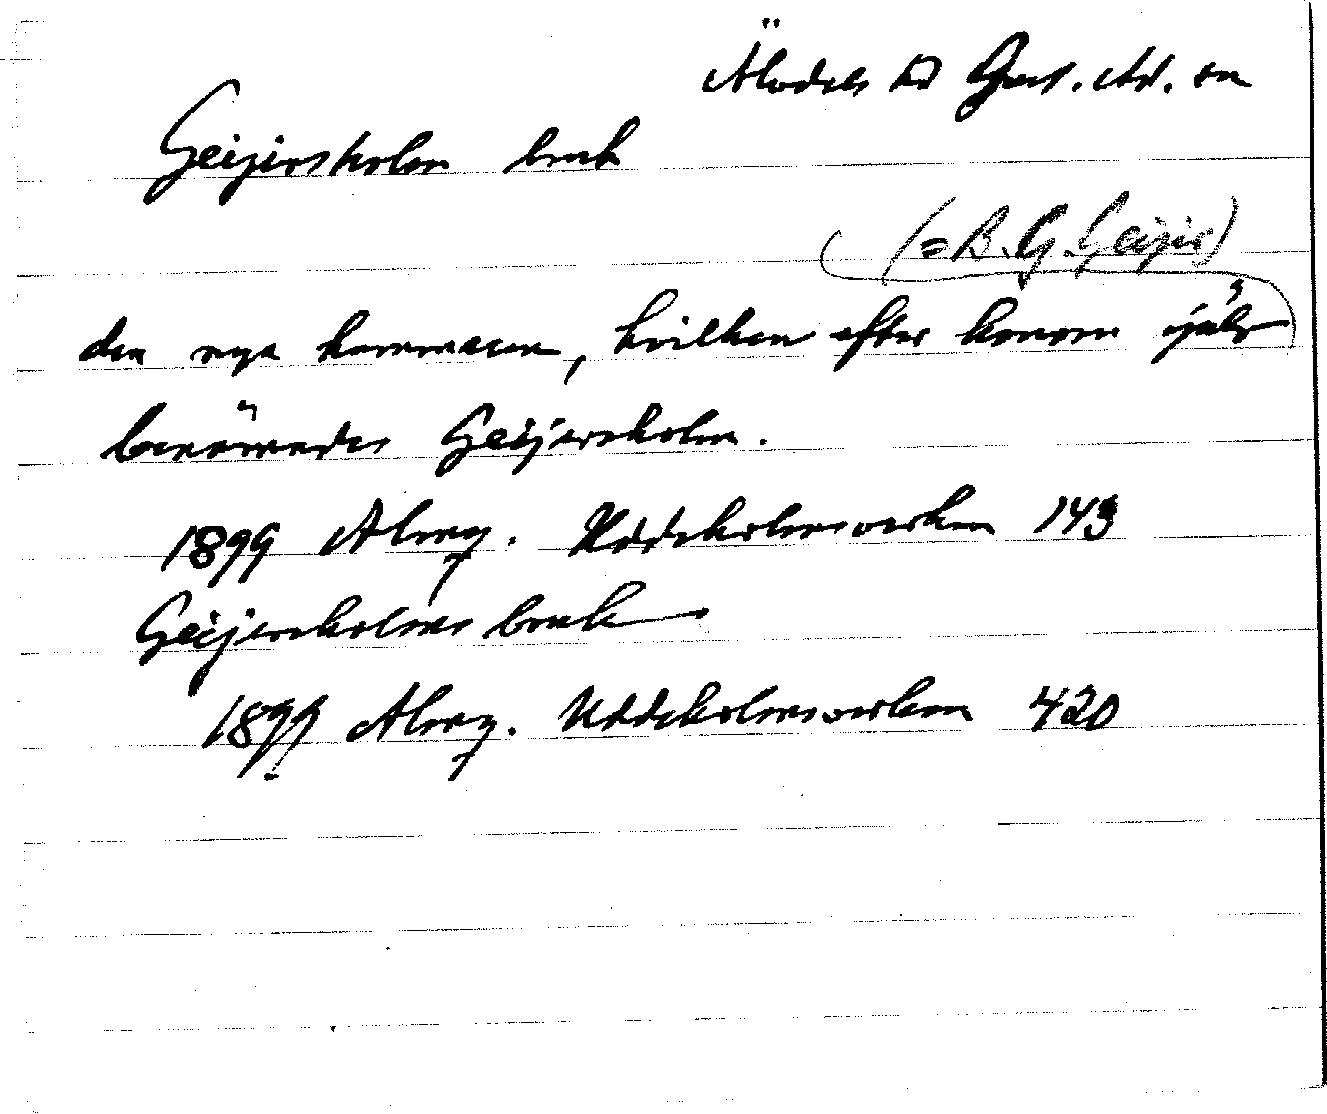 Älvdals hd Gust. Ad. sn
Geijersholm bruk
(= B. G. Geijer)
den nya hammaren, hvilken efter honom själv
benämndes Geijersholm.
1899 Almq. Uddeholmsverken 143
Geijersholms bruk
1899 Almq. Uddeholmsverken 420